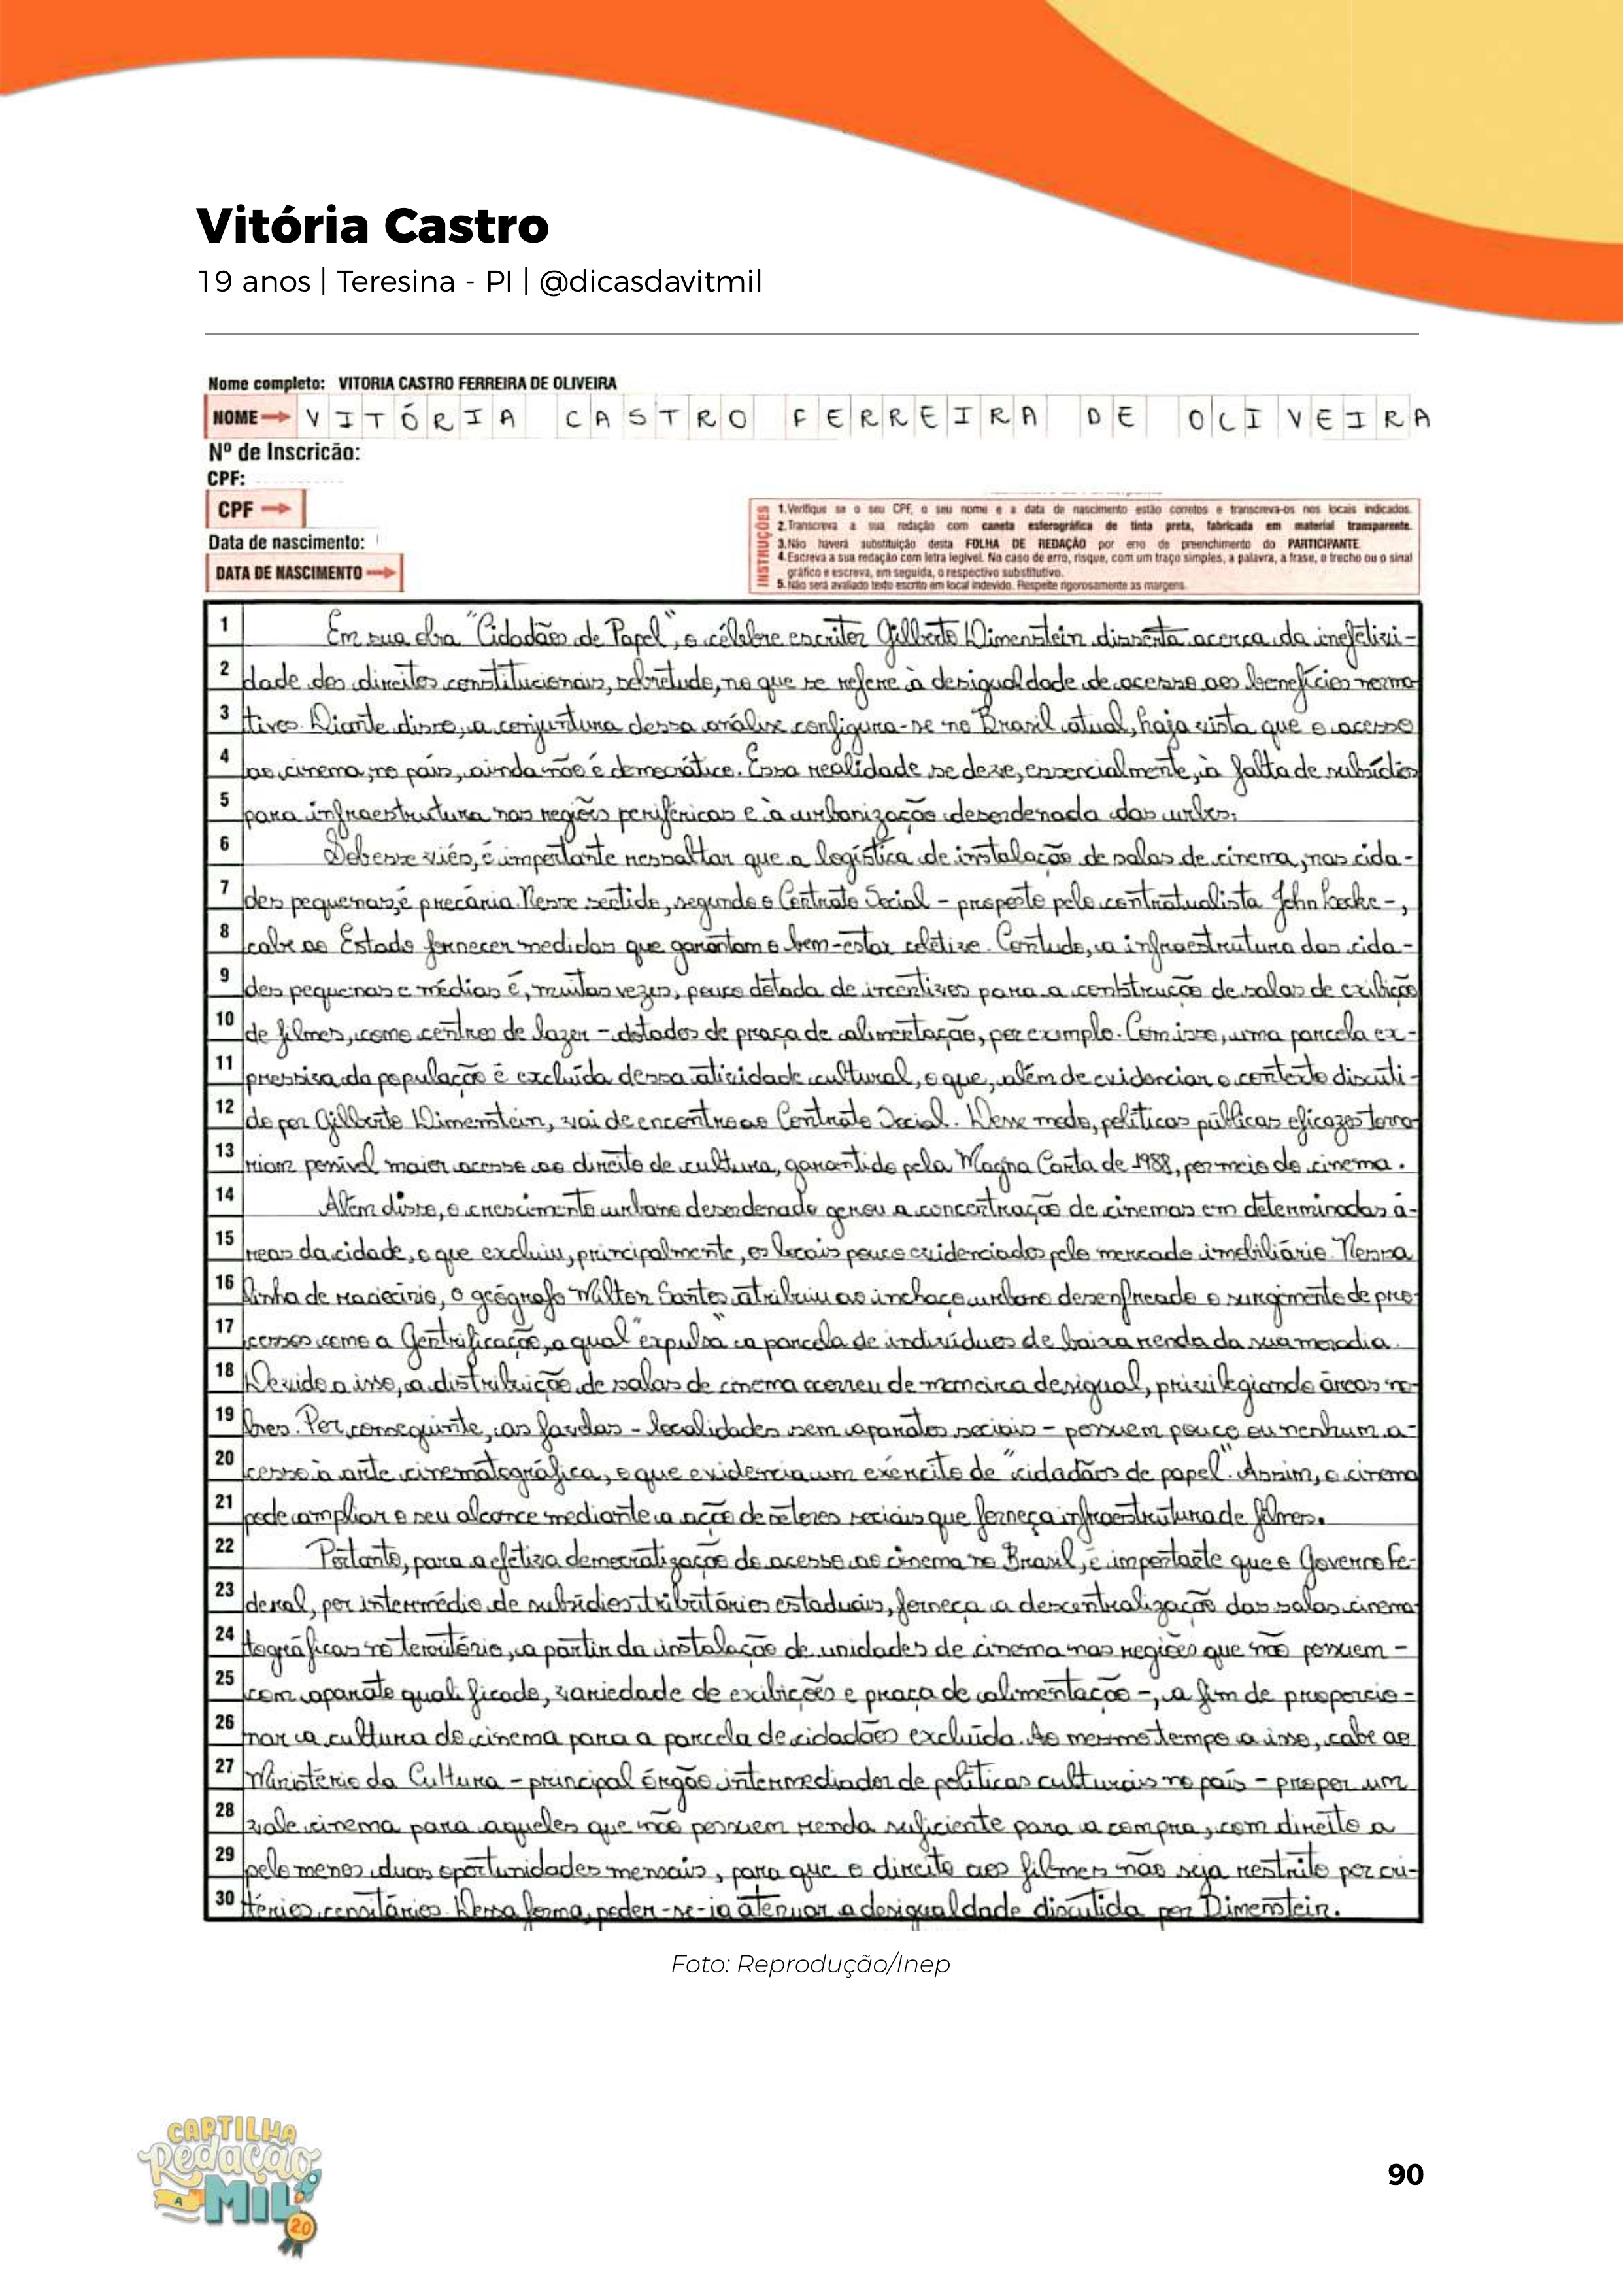 Vitória Castro
19 anos | Teresina - PI | @dicasdavitmil
Nome completo: VITORIA CASTRO FERREIRA DE OLIVEIRA
NOME VITÓRIA CASTRO FERREIRA DE OLIVEIRA
Nº de Inscricão:
CPF:
CPF
Data de nascimento:
DATA DE NASCIMENTO
INSTRUÇÕES
1.Verifique se o seu CPF, o seu nome e a data de nascimento estão corretos e transcreva-os nos locais indicados.
2.Transcreva a sua redação com caneta esferográfica de tinta preta, fabricada em material transparente.
3.Não haverá substituição desta FOLHA DE REDAÇÃO por erro de preenchimento do PARTICIPANTE
4.Escreva a sua redação com letra legível. No caso de erro, risque, com um traço simples, a palavra, a frase, o trecho ou o sinal
gráfico e escreva, em seguida, o respectivo substitutivo.
5.Não será avaliado texto escrito em local indevido. Respeite rigorosamente as margens.
1 Em sua obra "Cidadãos de Papel", o célebre escritor Gilberto Dimenstein disserta acerca da inefetivi-
2 dade dos direitos constitucionais, sobretudo, no que se refere à desigualdade de acesso aos benefícios norma
3 tivos. Diante disso, a conjuntura dessa análise configura-se no Brasil atual, haja vista que o acesso
4 ao cinema, no país, ainda não é democrático. Essa realidade se deve, essencialmente, à falta de subsídios
5 para infraestrutura nas regiões periféricas e à urbanização desordenada das urbes.
6 Sob esse viés, é importante ressaltar que a logística de instalação de salas de cinema, nas cida-
7 des pequenas, é precária. Nesse sentido, segundo o Contrato Social - proposto pelo contratualista John Locke -,
8 cabe ao Estado fornecer medidas que garantam o bem-estar coletivo. Contudo, a infraestrutura das cida-
9 des pequenas e médias é, muitas vezes, pouco dotada de incentivos para a construção de salas de exibição
10 de filmes, como centros de lazer - dotados de praça de alimentação, por exemplo. Com isso, uma parcela ex-
11 pressiva da população é excluída dessa atividade cultural, o que, além de evidenciar o contexto discuti-
12 do por Gilberto Dimenstein, vai de encontro ao Contrato Social. Desse modo, políticas públicas eficazes torna
13 riam possível maior acesso ao direito de cultura, garantido pela Magna Carta de 1988, por meio do cinema.
14 Além disso, o crescimento urbano desordenado gerou a concentração de cinemas em determinadas á-
15 reas da cidade, o que excluiu, principalmente, os locais pouco evidenciados pelo mercado imobiliário. Nessa
16 linha de raciocínio, o geógrafo Milton Santos atribuiu ao inchaço urbano desenfreado o surgimento de pro
17 cessos como a Gentrificação, a qual "expulsa" a parcela de indivíduos de baixa renda da sua moradia.
18 Devido a isso, a distribuição de salas de cinema ocorreu de maneira desigual, privilegiando áreas no-
19 bres. Por conseguinte, as favelas - localidades sem aparatos sociais - possuem pouco ou nenhum a-
20 cesso à arte cinematográfica, o que evidencia um exército de "cidadãos de papel". Assim, o cinema
21 pode ampliar o seu alcance mediante a ação de setores sociais que forneça infraestrutura de filmes.
22 Portanto, para a efetiva democratização do acesso ao cinema no Brasil, é importante que o Governo Fe-
23 deral, por intermédio de subsídios tributários estaduais, forneça a descentralização das salas cinema
24 tográficas no território, a partir da instalação de unidades de cinema nas regiões que não possuem -
25 com aparato qualificado, variedade de exibições e praça de alimentação -, a fim de proporcio-
26 nar a cultura do cinema para a parcela de cidadãos excluída. Ao mesmo tempo a isso, cabe ao
27 Ministério da Cultura - principal órgão intermediador de políticas culturais no país - propor um
28 vale cinema para aqueles que não possuem renda suficiente para a compra, com direito a
29 pelo menos duas oportunidades mensais, para que o direito aos filmes não seja restrito por cri-
30 térios censitários. Dessa forma, poder-se-ia atenuar a desigualdade discutida por Dimenstein.
Foto: Reprodução/Inep
CARTILHA
Redação
A MIL
20
90